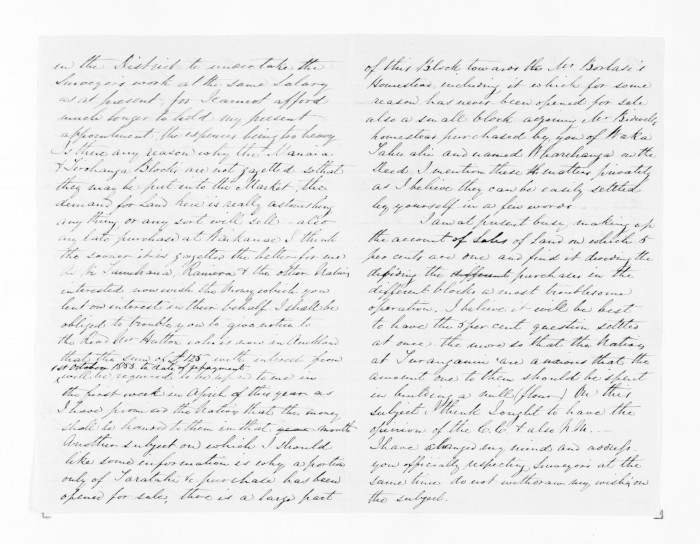 in the District to undertake the
Surveyor's work at the same Salary
as at present for I cannot afford
much longer to hold my present
appointment, the expenses being so heavy
Is there any reason why the Manaia
& Blocks are not gazetted so that
they may be put into the Market, the
demand for land here is really astonishing
any thing or any sort will sell - also
my late purchase at I think
the sooner it is gazetted the better for me
As Te & the other Natives
interested now wish the Money which you
lent on interest in their behalf I shall be
obliged to trouble you to give notice to
the Revd Mr Hutton who is now in
that the sum of £125 with interest from
1st October 1853 to date of repayment
will be required to be repaid to me in
the first week in April of this year as
I have promised the Natives that the money
shall be handed to them in that year month
Another subject on which I should
like some information is why a portion
only of Taratahi purchase has been
opened for sale, there is a large part
of this Block towards the Mr Borlase's
Homestead, including it which for some
reason has never been opened for sale
also a small block adjoining Mr Bidwell's
homestead purchased by you of Waka
Tahu ahi and named Wharehanga in the
Deed I mention these matters privately
as I believe they can be easily settled
by yourself in a few words -
I am at present busy making up
the account of sales of land on which 5
per cents are one and find it dividing the
dividing the different purchases in the
different blocks a most troublesome
operation. I believe it will be best
to have the 5 per cent question settled
at once the more so that the Natives
at Turanganui are anxious that the
amount one to them should be spent
in building a mill (flour) On this
subject I think I ought to have the
opinion of the C.C. & also
I have changed my mind and
you officially respecting Surveyors at the
same time do not withdraw my wishes on
the subject.